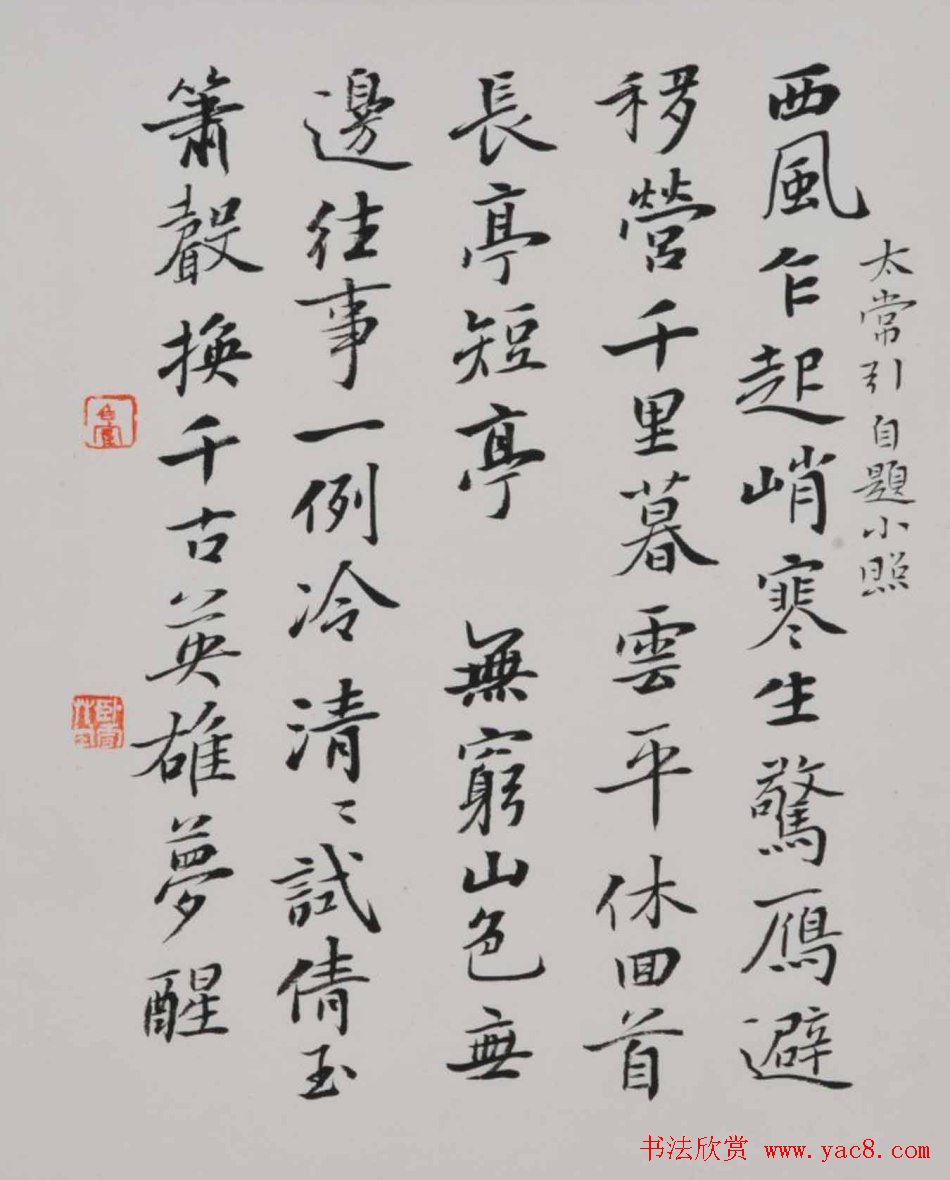 太常引自題小照
西風乍起峭寒生驚鴈避
移營千里暮雲平休回首
長亭短亭　無窮山色無
邊往事一例冷清〻試倩玉
簫聲換千古英雄夢醒
书法欣赏 www.yac8.com